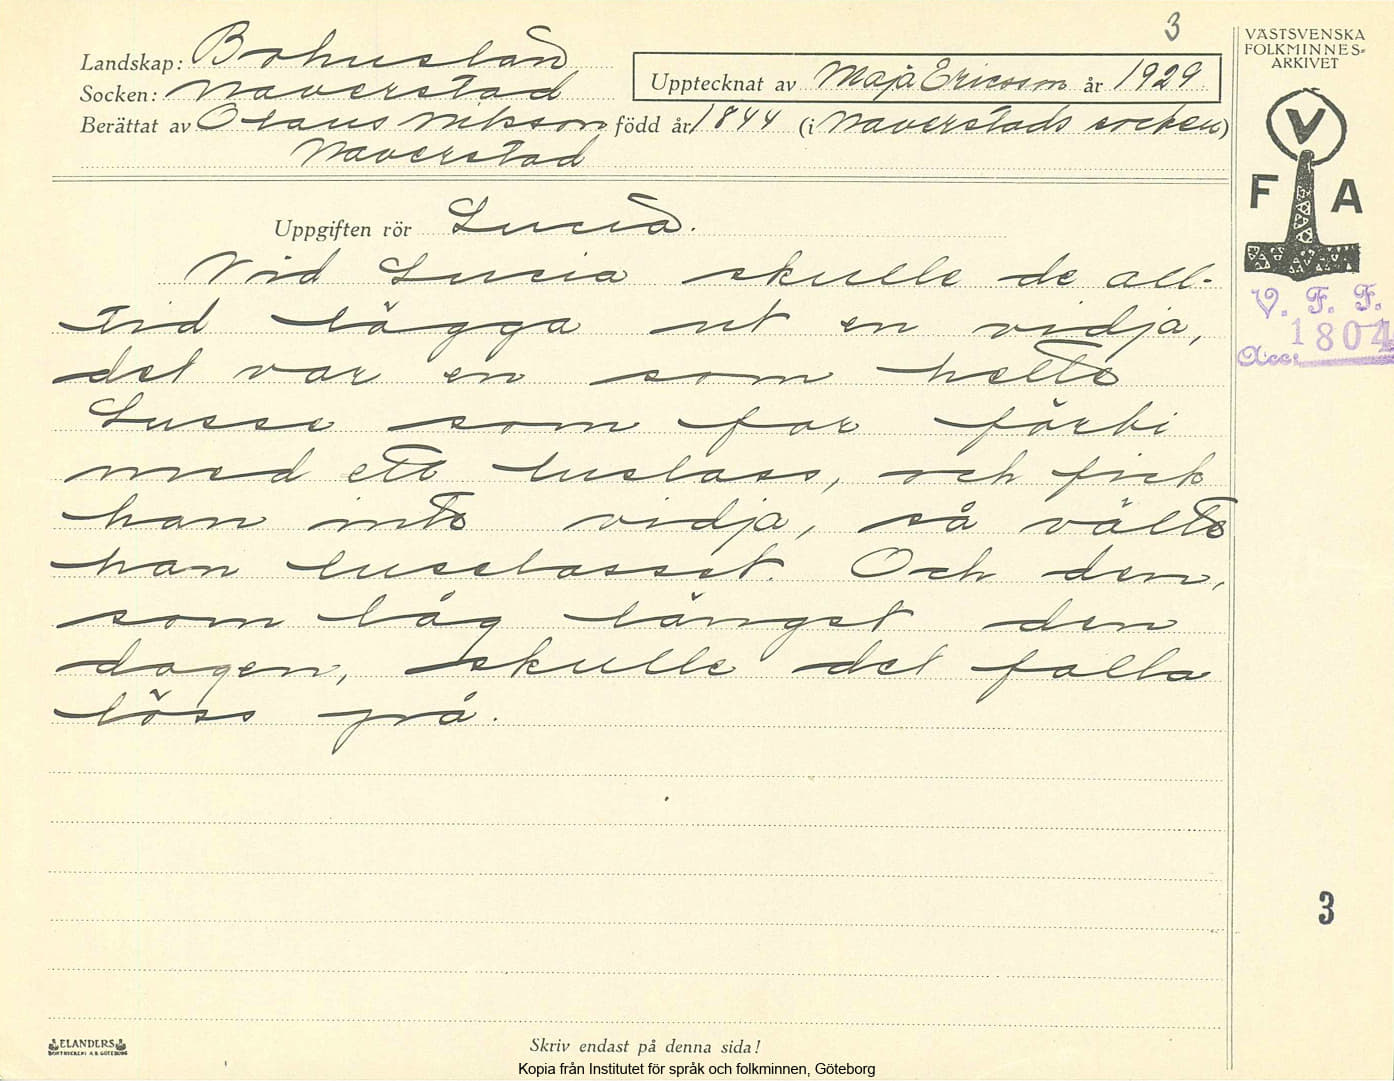 3
Landskap: Bohuslän
Socken: Naverstad
Upptecknat av Maja Ericson år 1929
Berättat av Olaus född år 1844 (i Naverstads socken)
Naverstad
VÄSTSVENSKA
FOLKMINNES-
ARKIVET
V
F A
V. F. F.
1804
Acc:
Uppgiften rör Lucia.
Vid Lucia skulle de all-
tid lägga ut en vidja,
det var en som hette
Lusse som far förbi
med ett luslass, och fick
han inte vidja, så välte
han luselasset. Och den,
som låg längst den
dagen, skulle det falla
löss på.
3
ELANDERS
BOKTRYCKERI A.B. GÖTEBORG
Skriv endast på denna sida!
Kopia från Institutet för språk och folkminnen, Göteborg